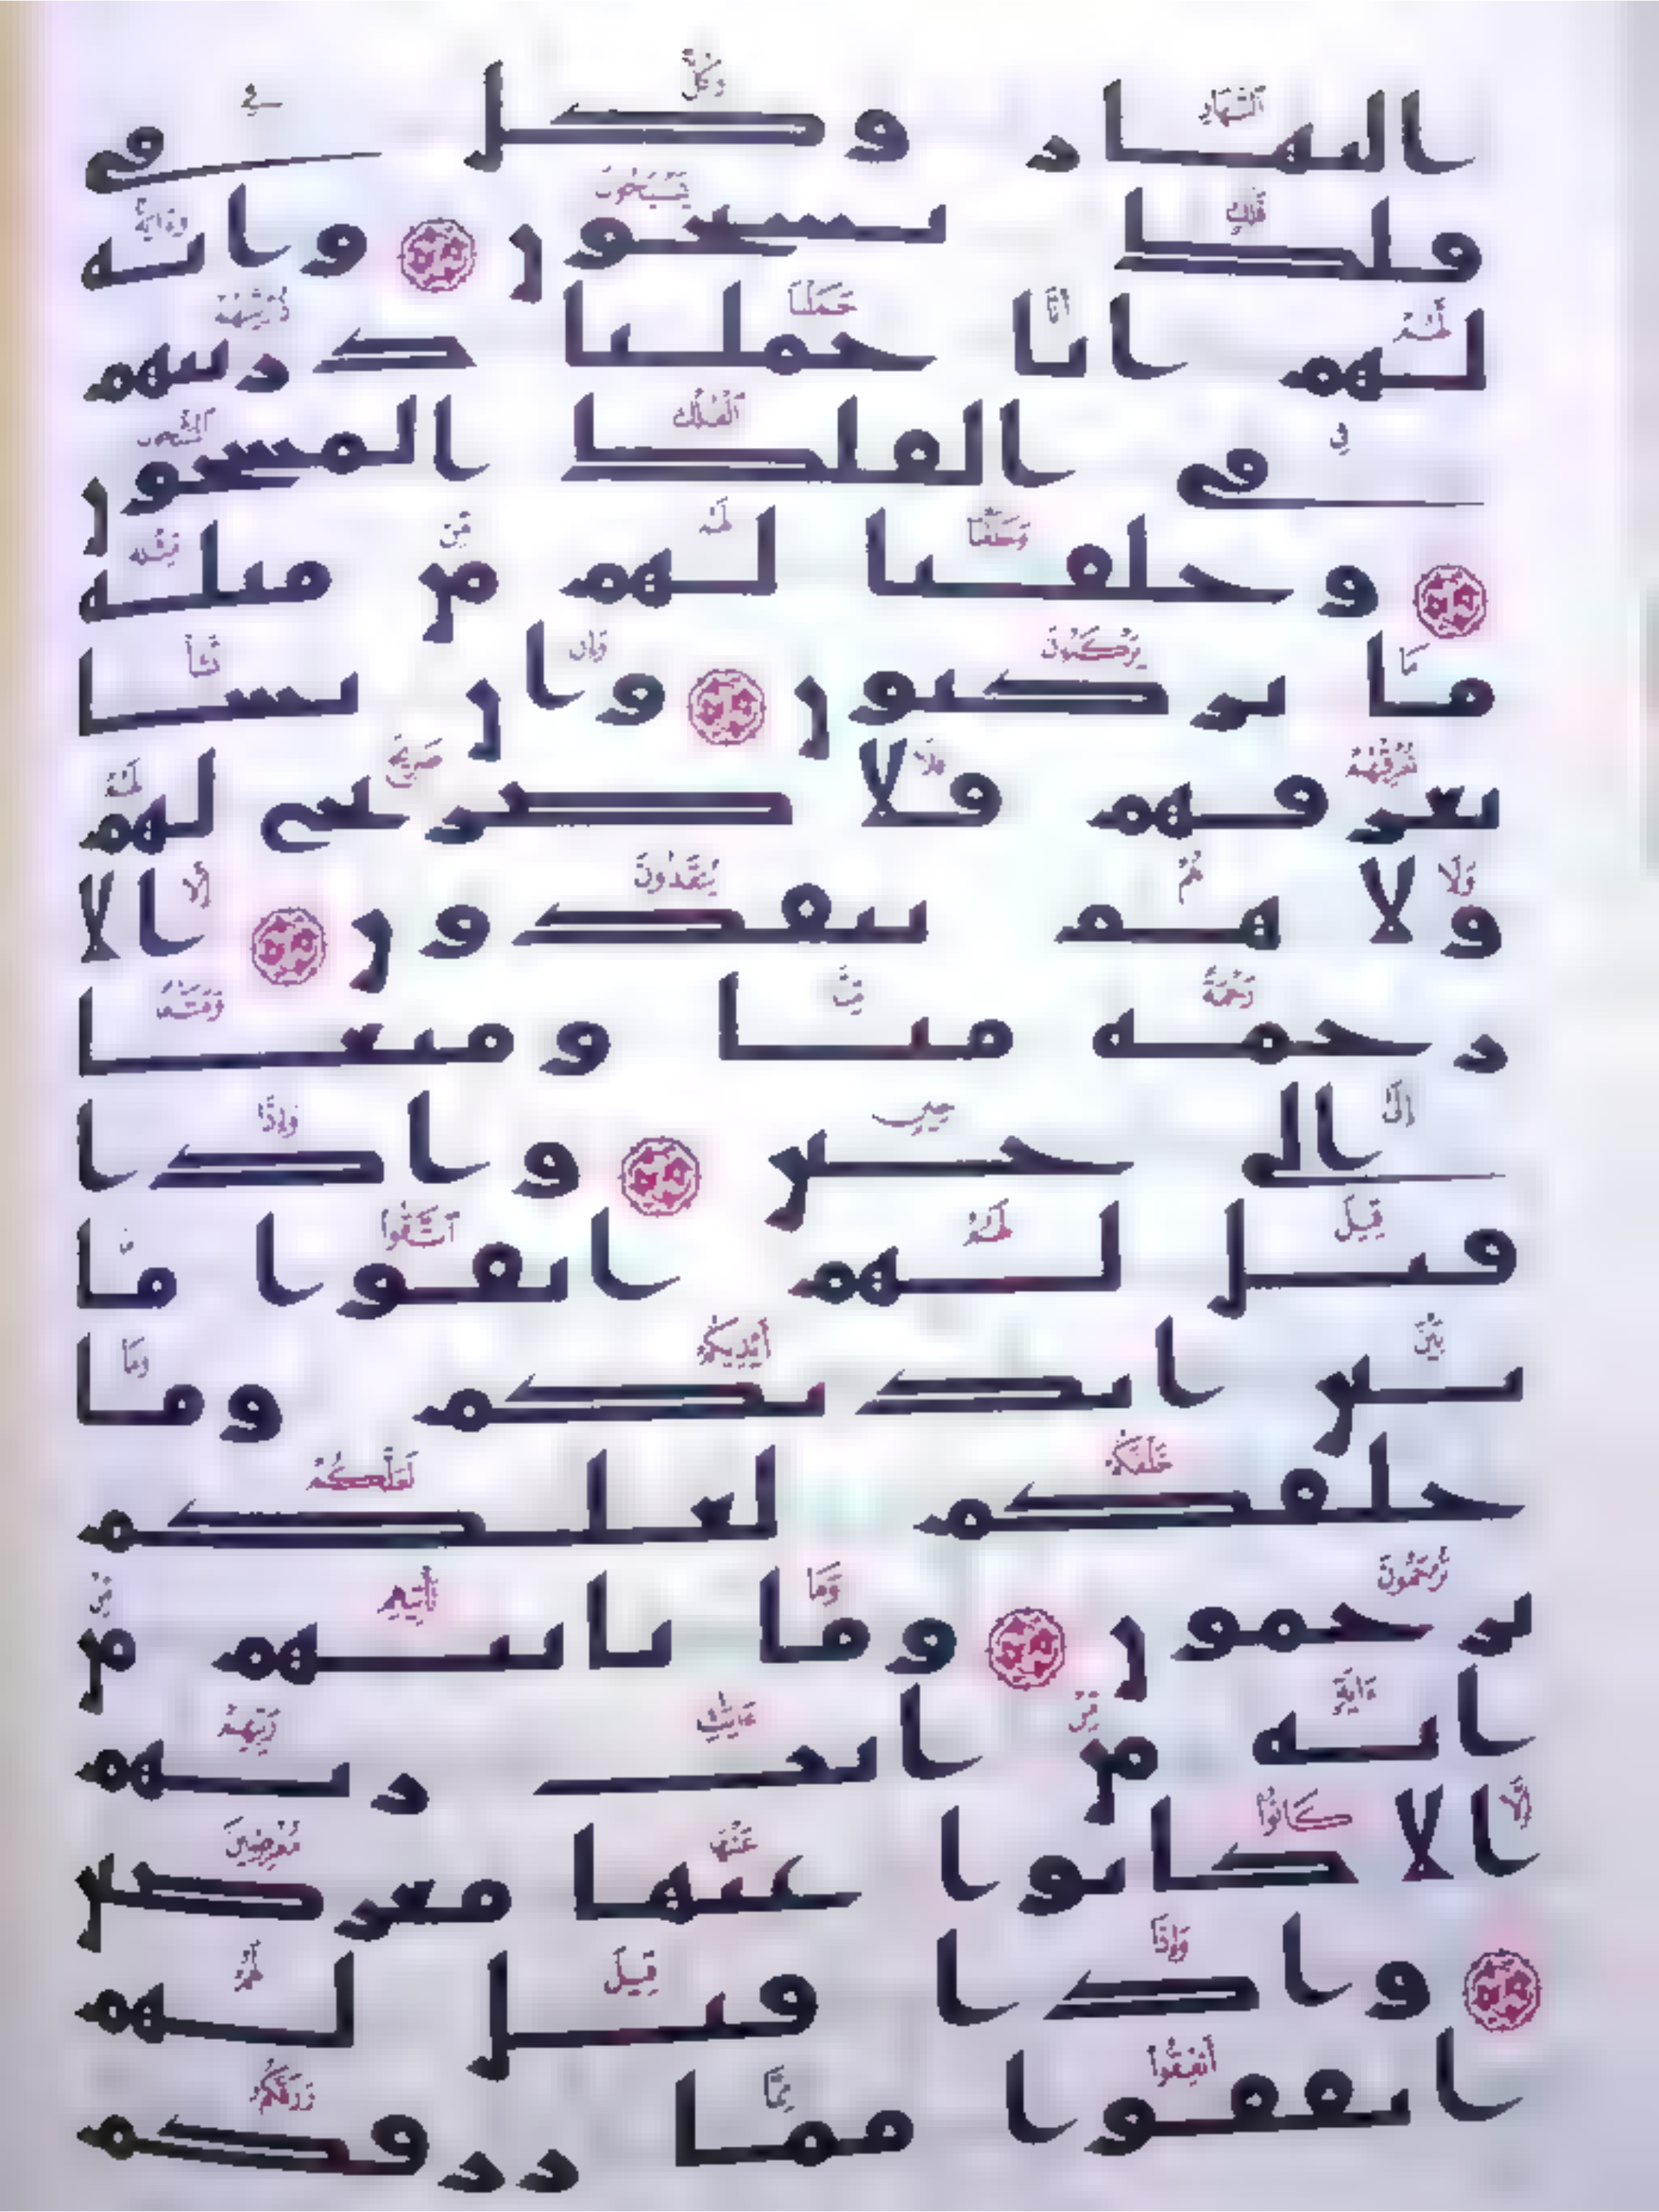 النهار وكل في
فلك يسبحون واية
لهم انا حملنا ذريتهم
في الفلك المشحون
وخلقنا لهم من مثله
ما يركبون وان نشا
نغرقهم فلا صريخ لهم
ولا هم ينقذون الا
رحمة منا ومتعا
الى حين واذا
قيل لهم اتقوا ما
بين ايديكم وما
خلفكم لعلكم
ترحمون وما تاتيهم من
اية من ايت ربهم
الا كانوا عنها معرضين
واذا قيل لهم
انفقوا مما رزقكم